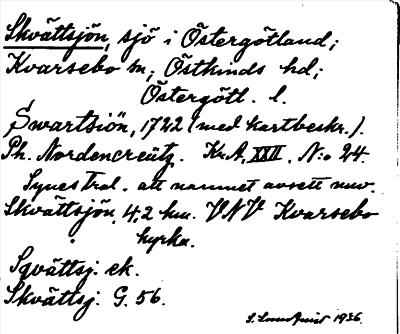 Skvättsjön, sjö i Östergötland;
Kvarsebo sn; Östkinds hd;
Östergötl. l.
Swartsiön, 1722 (med kartbeskr.).
Ph. Nordencreütz. Kr.A, XXII, N:o 24.
Synes tral. att namnet avsett nuv.
Skvättsjön, 4,2 km. VNV Kvarsebo
kyrka.
Sqvättsj. ek.
Skvättsj. G. 56.
1936.